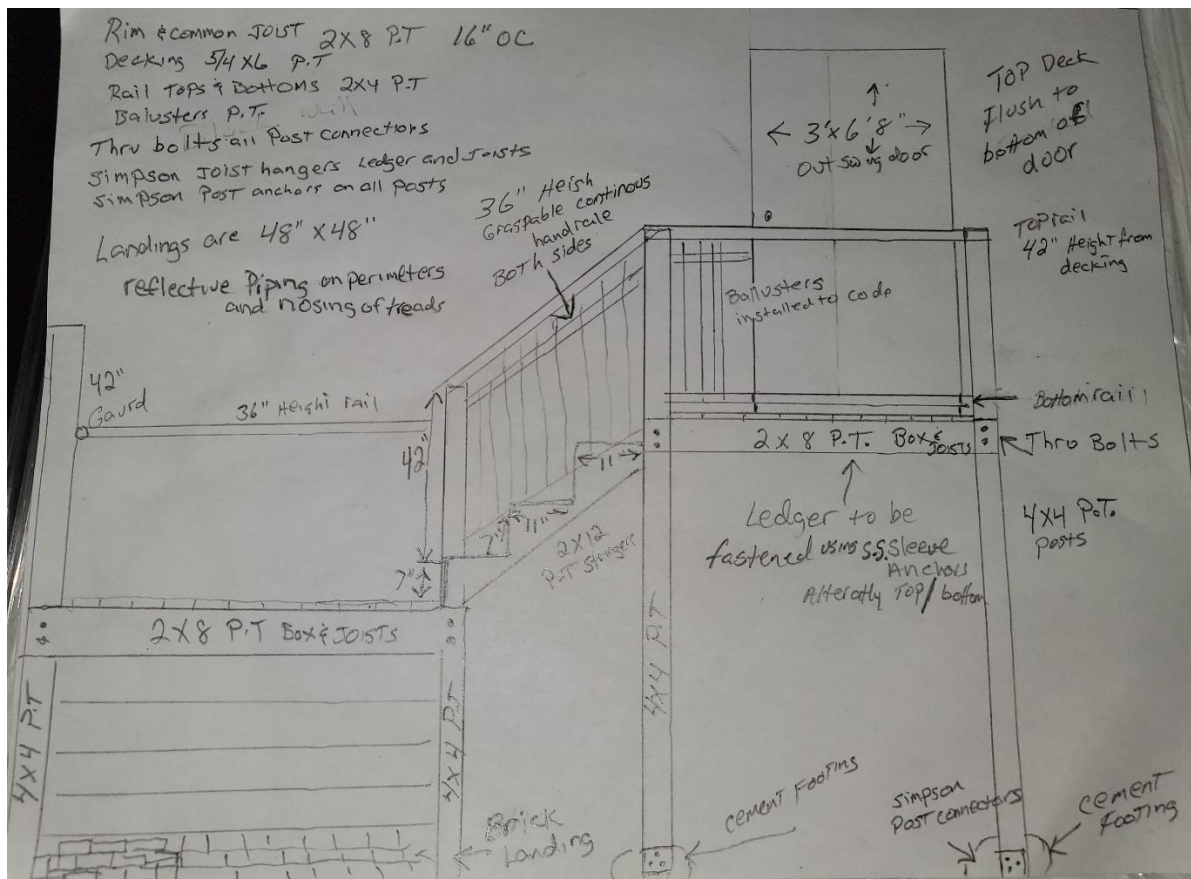 Rim & common JOIST 2X8 P.T 16" OC
Decking 5/4 X6 P.T
Rail TOPS & BOTTOMS 2X4 P.T
Balusters P.T.
Thru bolts all Post connectors
Simpson Joist hangers Ledger and Joists
Simpson Post anchors on all posts
Landings are 48" X 48"
reflective Piping on perimeters
and nosing of treads
36" Heigh
Graspable continous
handraile
Both sides
3'x6'8"
out swing door
TOP Deck
Flush to
bottom of
door
TOP rail
42" Height from
decking
Ballusters
installed to code
42"
Gaurd
36" Height rail
42"
7"
7"
11"
11"
2X12
P.T Stringers
Bottom rail
2 X 8 P.T. Box &
JOISTS
Thru Bolts
Ledger to be
fastened using S.S. Sleeve
Anchors
Alteratly TOP/bottom
4X4 P.T.
Posts
2X8 P.T Box & JOISTS
4X4 P.T
4X4 P.T
4X4 P.T
Brick
Landing
CEMENT FOOTING
Simpson
Post connectors
CEMENT
FOOTING